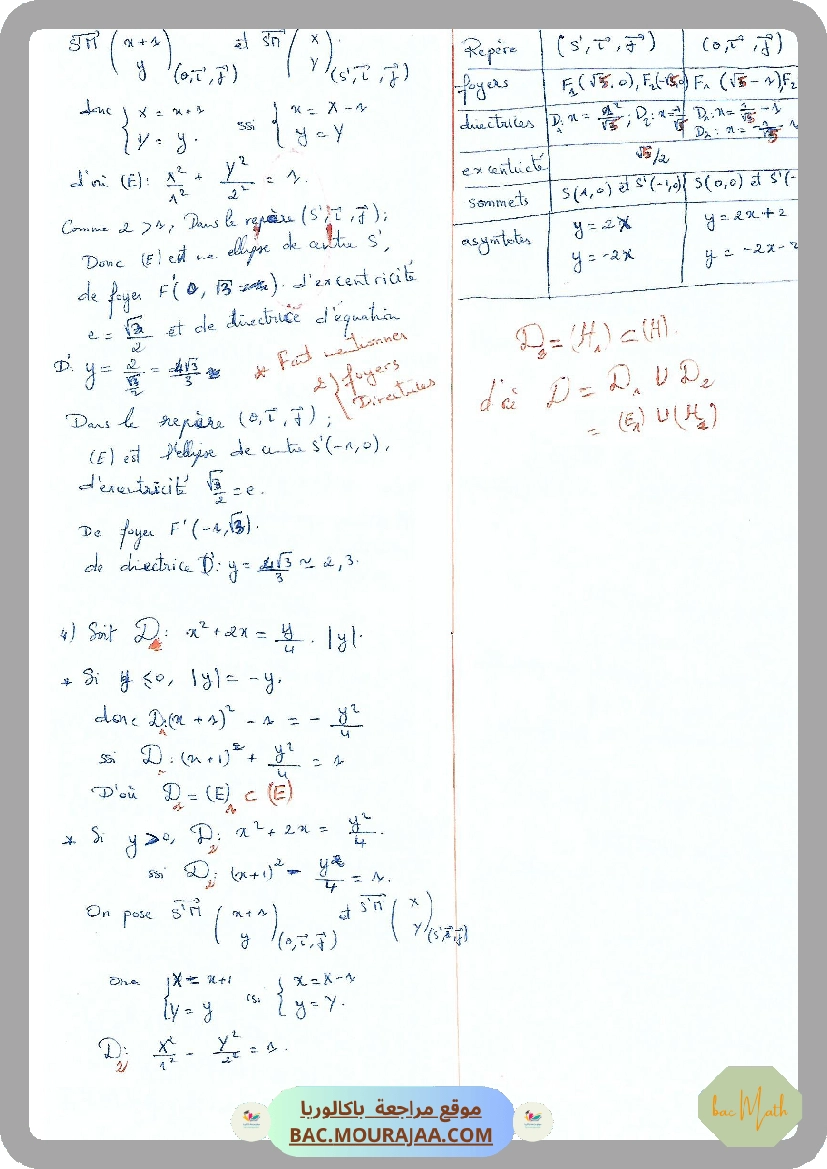 S'M (x+1 / y)(O, i, j) et S'M (X / Y)(S', i, j)
donc { X = x+1 / Y = y. ssi { x = X-1 / y = Y
d'où (E): X²/1² + Y²/2² = 1.
Comme 2 > 1, Dans le repère (S', i, j);
Donc (E) est une ellipse de centre S',
de foyer F'(0, √3). d'excentricité
e = √3/2 et de directrice d'équation
D': y = 2/(√3/2) = 4√3/3
* Faut mentionner
2) foyers
Directrices
Dans le repère (O, i, j);
(E) est l'ellipse de centre S'(-1,0),
d'excentricité √3/2 = e.
De foyer F'(-1,√3).
de directrice D': y = 4√3/3 ≃ 2,3.
4) Soit D: x² + 2x = y/4 . |y|.
* Si y ≤ 0, |y| = -y,
donc D₁:(x+1)² - 1 = - y²/4
ssi D₁:(x+1)² + y²/4 = 1
D'où D₁ = (E)₁ ⊂ (E)
* Si y ≥ 0, D₂: x² + 2x = y²/4.
ssi D₂: (x+1)² - y²/4 = 1.
On pose S'M (x+1 / y)(O, i, j) et S'M (X / Y)(S', i, j)
ona { X = x+1 / Y = y ssi { x = X-1 / y = Y.
D₂: X²/1² - Y²/2² = 1.
Repère (S', i, j) (O, i, j)
foyers F₁(√5,0), F₂(-√5,0) F₁(√5-1) F₂
directrices D₁: x = 1²/√5 ; D₂: x = -1/√5 D₁: x = 1/√5 - 1 D₂: x =
excentricité √5/2
sommets S(1,0) et S'(-1,0) S(0,0) et S'(-
asymtotes y = 2X y = 2x+2
y = -2X y = -2x-2
D₂ = (H₁) ⊂ (H).
d'où D = D₁ ∪ D₂
= (E₁) ∪ (H₁)
موقع مراجعة باكالوريا
BAC.MOURAJAA.COM
bac Math